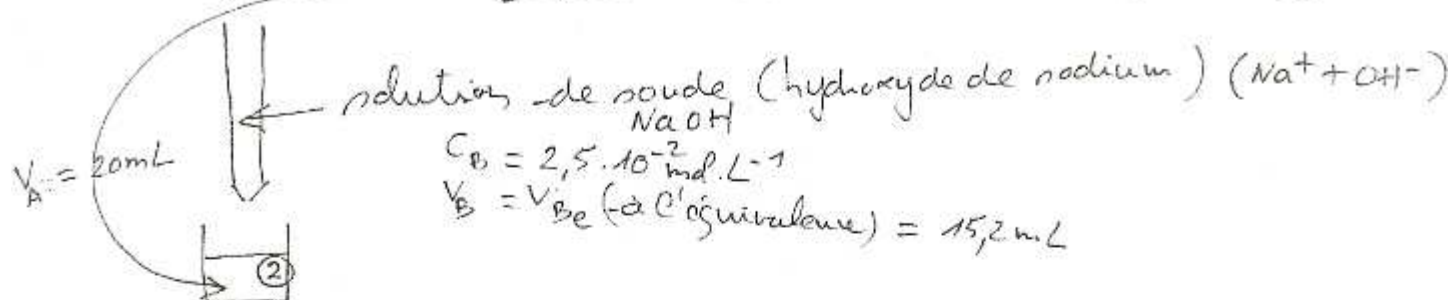 solution de soude (hydroxyde de sodium) (Na⁺ + OH⁻)
NaOH
V_A = 20mL
C_B = 2,5.10⁻² mol.L⁻¹
V_B = V_Be (à l'équivalence) = 15,2 mL
②